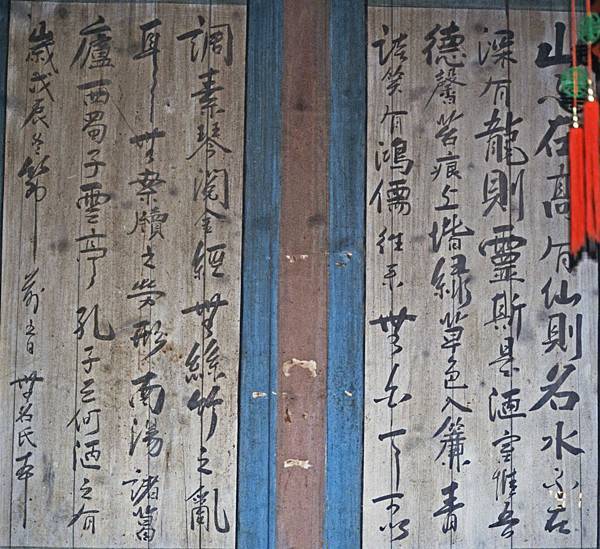 山不在高有仙則名水不在
深有龍則靈斯是陋室惟吾
德馨苔痕上堦綠草色入簾青
談笑有鴻儒往來無白丁可以
調素琴閱金經無絲竹之亂
耳無案牘之勞形南陽諸葛
廬西蜀子雲亭孔子云何陋之有
歲戊辰冬節前五日無名氏書